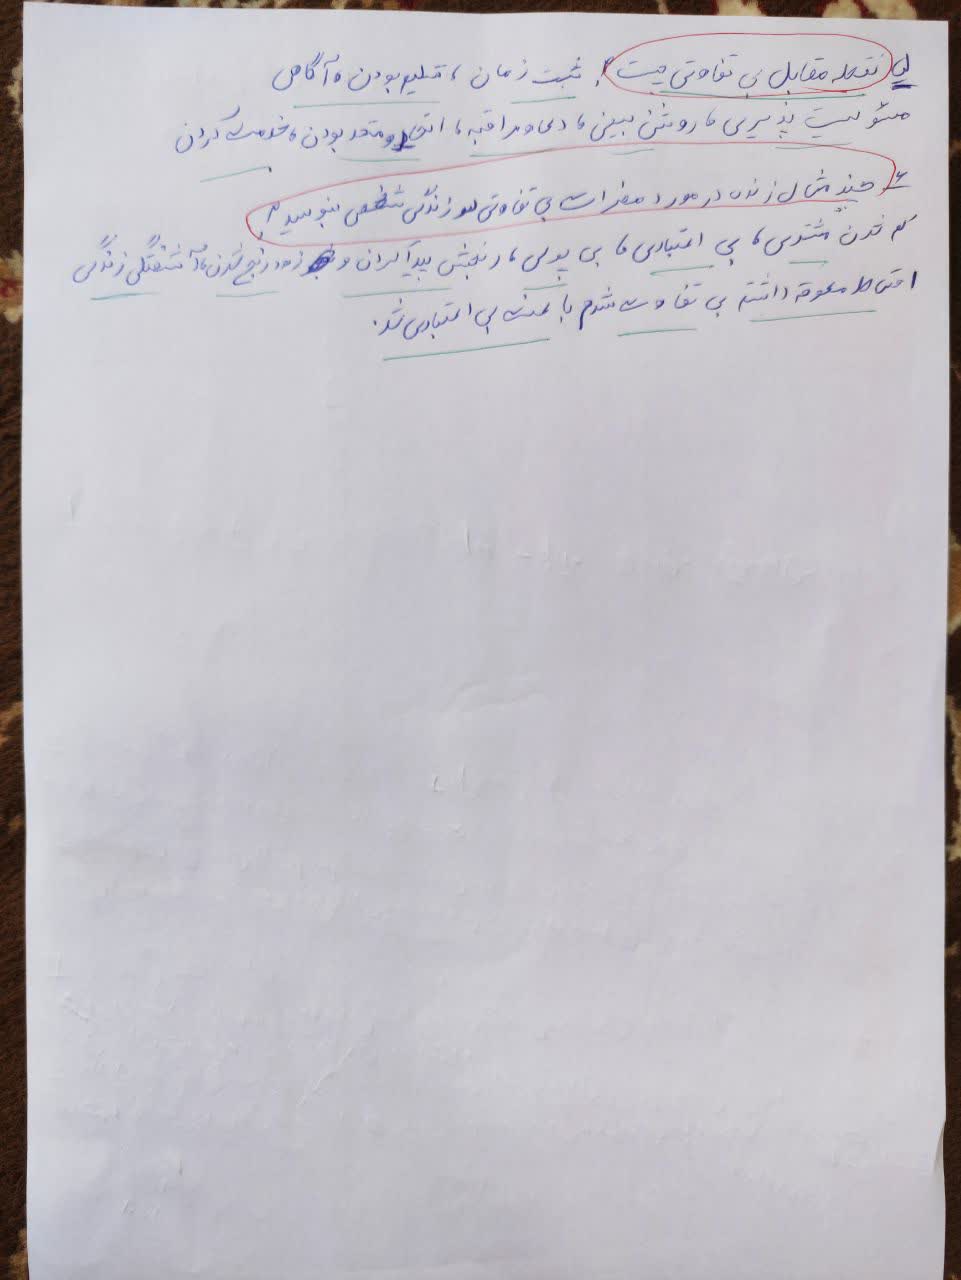 نقطه مقابل بی تفاوتی چیست؟ ثبت زمان، تسلیم بودن، آگاهی
مسئولیت پذیری، روشن بینی، دعا و مراقبه، اتحاد و متحد بودن، خدمت کردن
۶ چند مثال زنده در مورد مضرات بی تفاوتی در زندگی شخصی بنویسید؟
کم شدن مشتری، بی اعتباری، بی پولی، رنجش دیگران و زود رنج شدن، آشفتگی زندگی
اقساط معوقه داشتم بی تفاوت شدم باعث بی اعتباری شد.